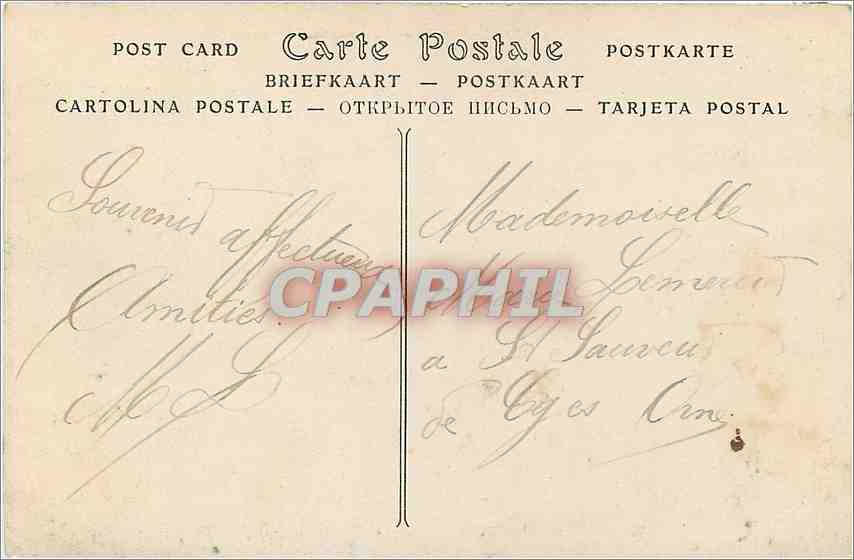 POST CARD Carte Postale POSTKARTE
BRIEFKAART — POSTKAART
CARTOLINA POSTALE — ОТКРЫТОЕ ПИСЬМО — TARJETA POSTAL
Souvenir
affectueux
Amitiés
M L
Mademoiselle
Lemercier
a St Sauveur
de Orne
CPAPHIL